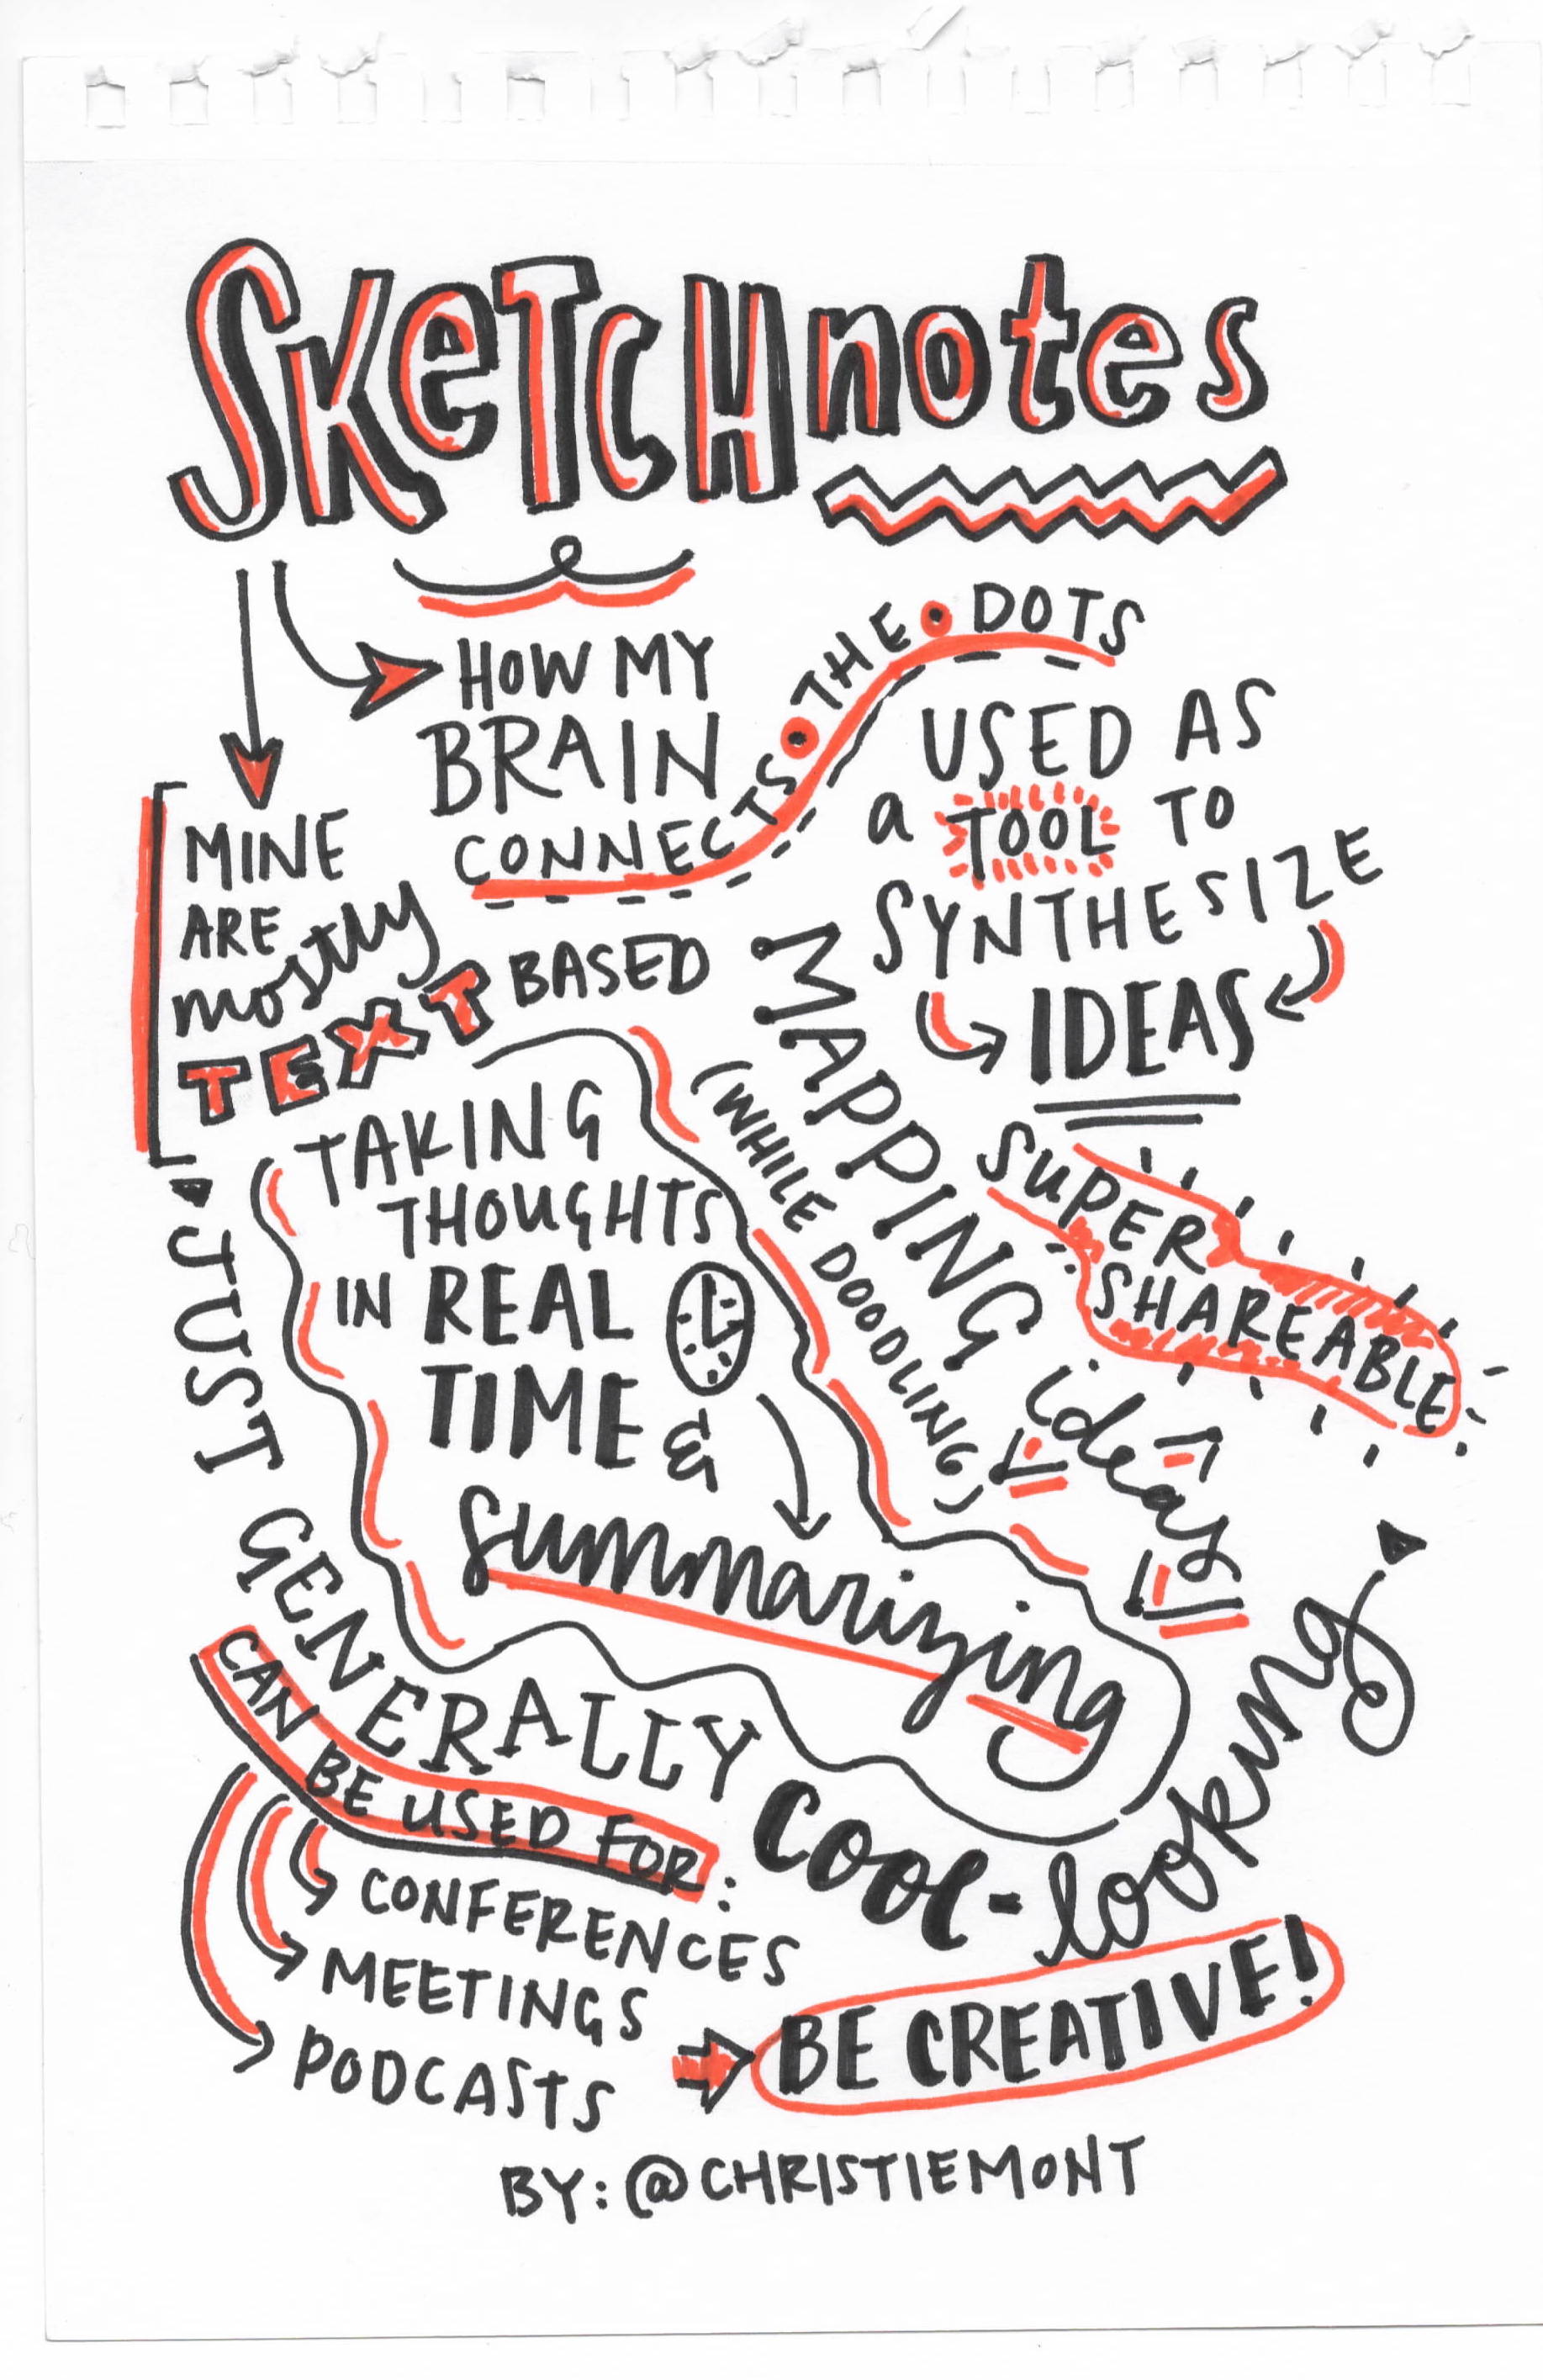 SKeTCHnotes
HOW MY
BRAIN
CONNECTS • THE • DOTS
USED AS
a TOOL TO
SYNTHESIZE
IDEAS
MINE
ARE
mostly
TEXT BASED
MAPPING ideas
(WHILE DOODLING)
SUPER
SHAREABLE
TAKING
THOUGHTS
IN REAL
TIME &
summarizing
JUST GENERALLY COOL-looking
CAN BE USED FOR:
CONFERENCES
MEETINGS
PODCASTS
BE CREATIVE!
BY: @CHRISTIEMONT